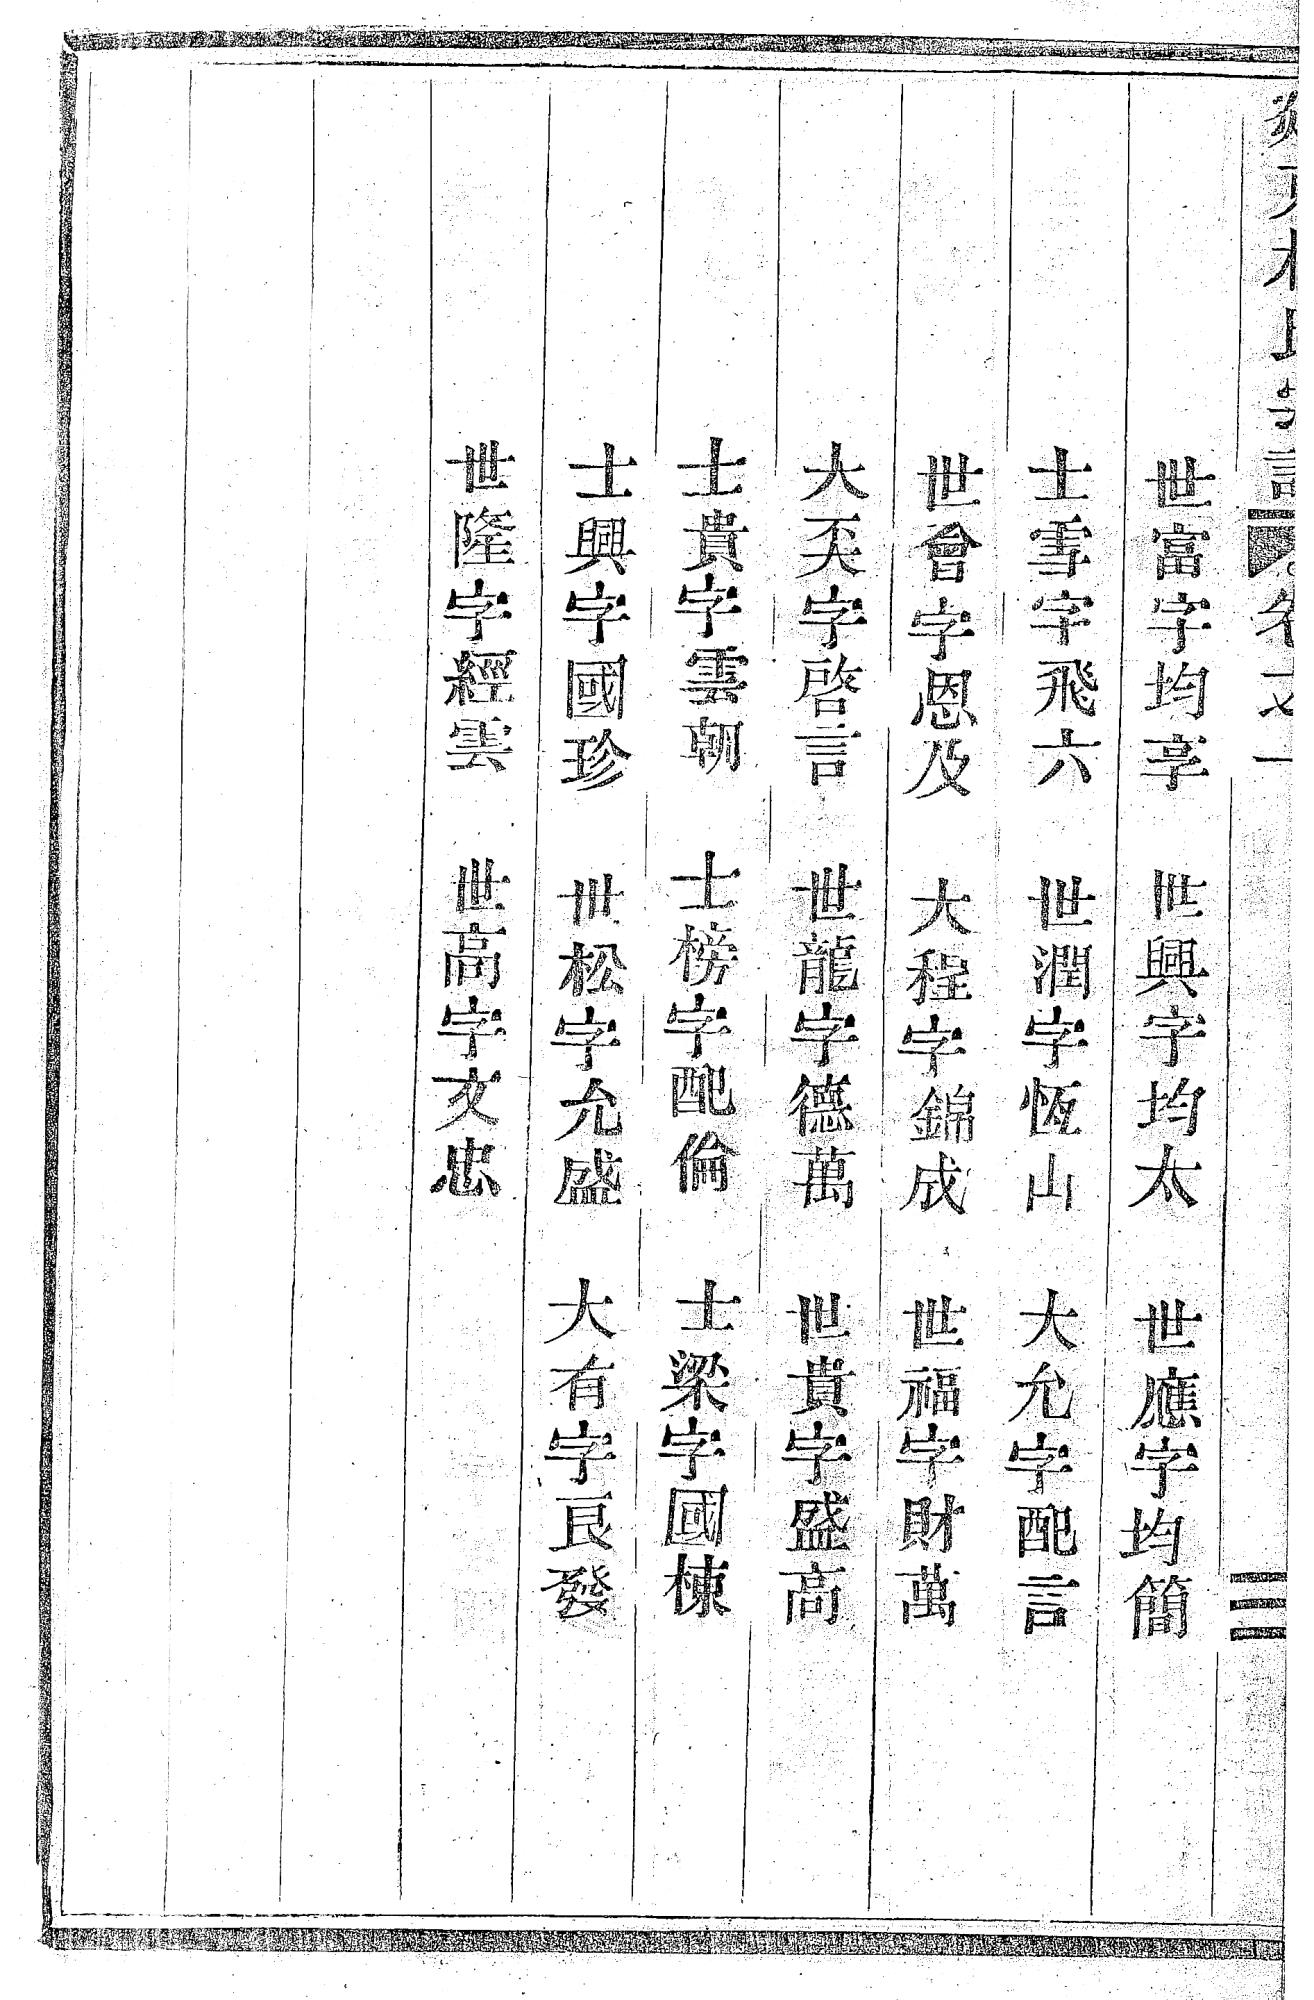 氏
卷之一
三
世富字均享　世興字均太　世應字均簡
士雪字飛六　世潤字恆山　大允字配言
世會字恩及　大程字錦成　世福字財萬
大奀字啓言　世龍字德萬　世貴字盛高
士貴字雲朝　士榜字配倫　士梁字國棟
士興字國珍　世松字允盛　大有字良發
世隆字經雲　世高字文忠